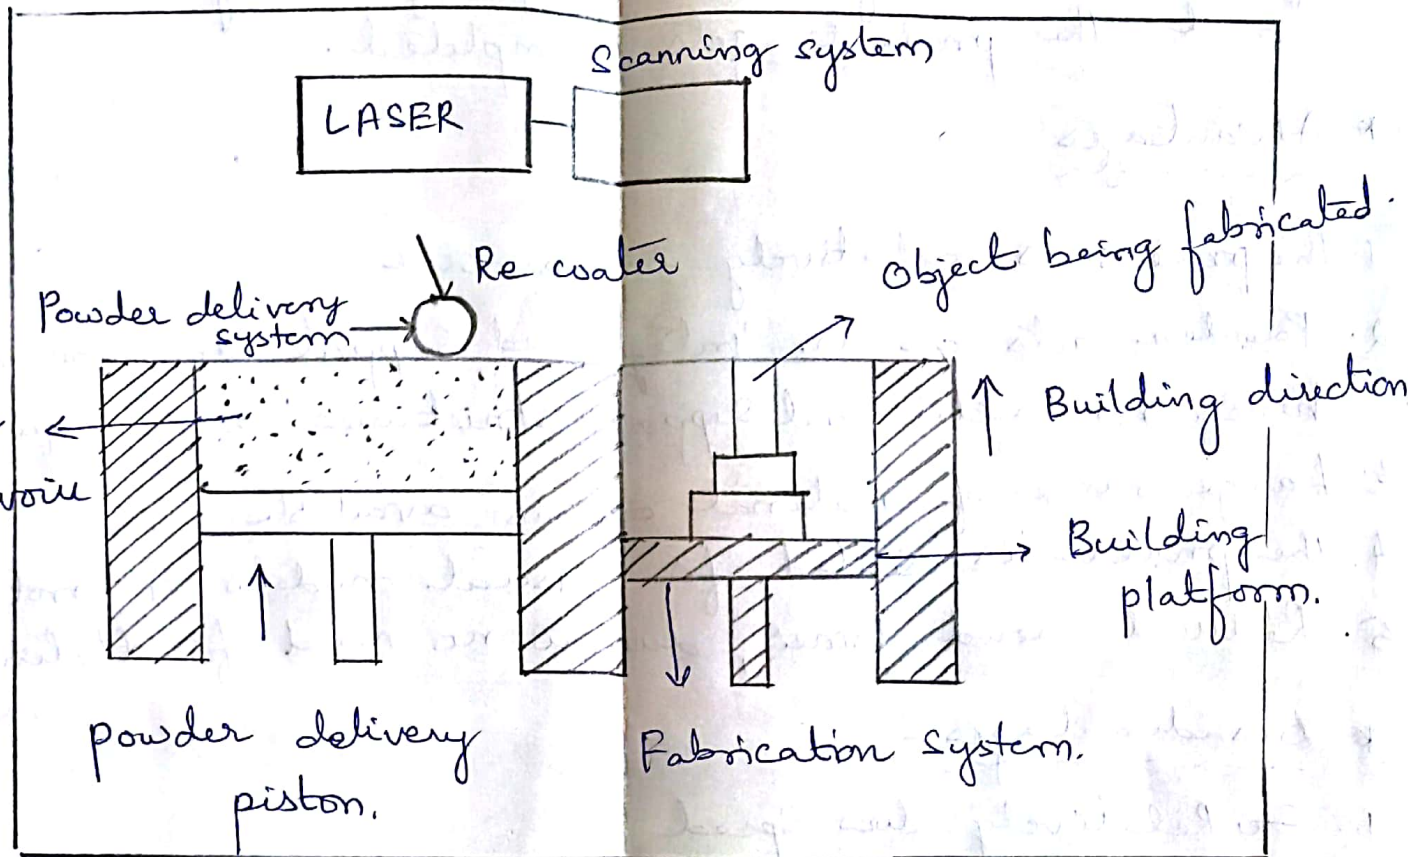 Scanning system
LASER
Re coater
Object being fabricated.
Powder delivery
system
Building direction
Building
platform.
powder delivery
piston.
Fabrication System.